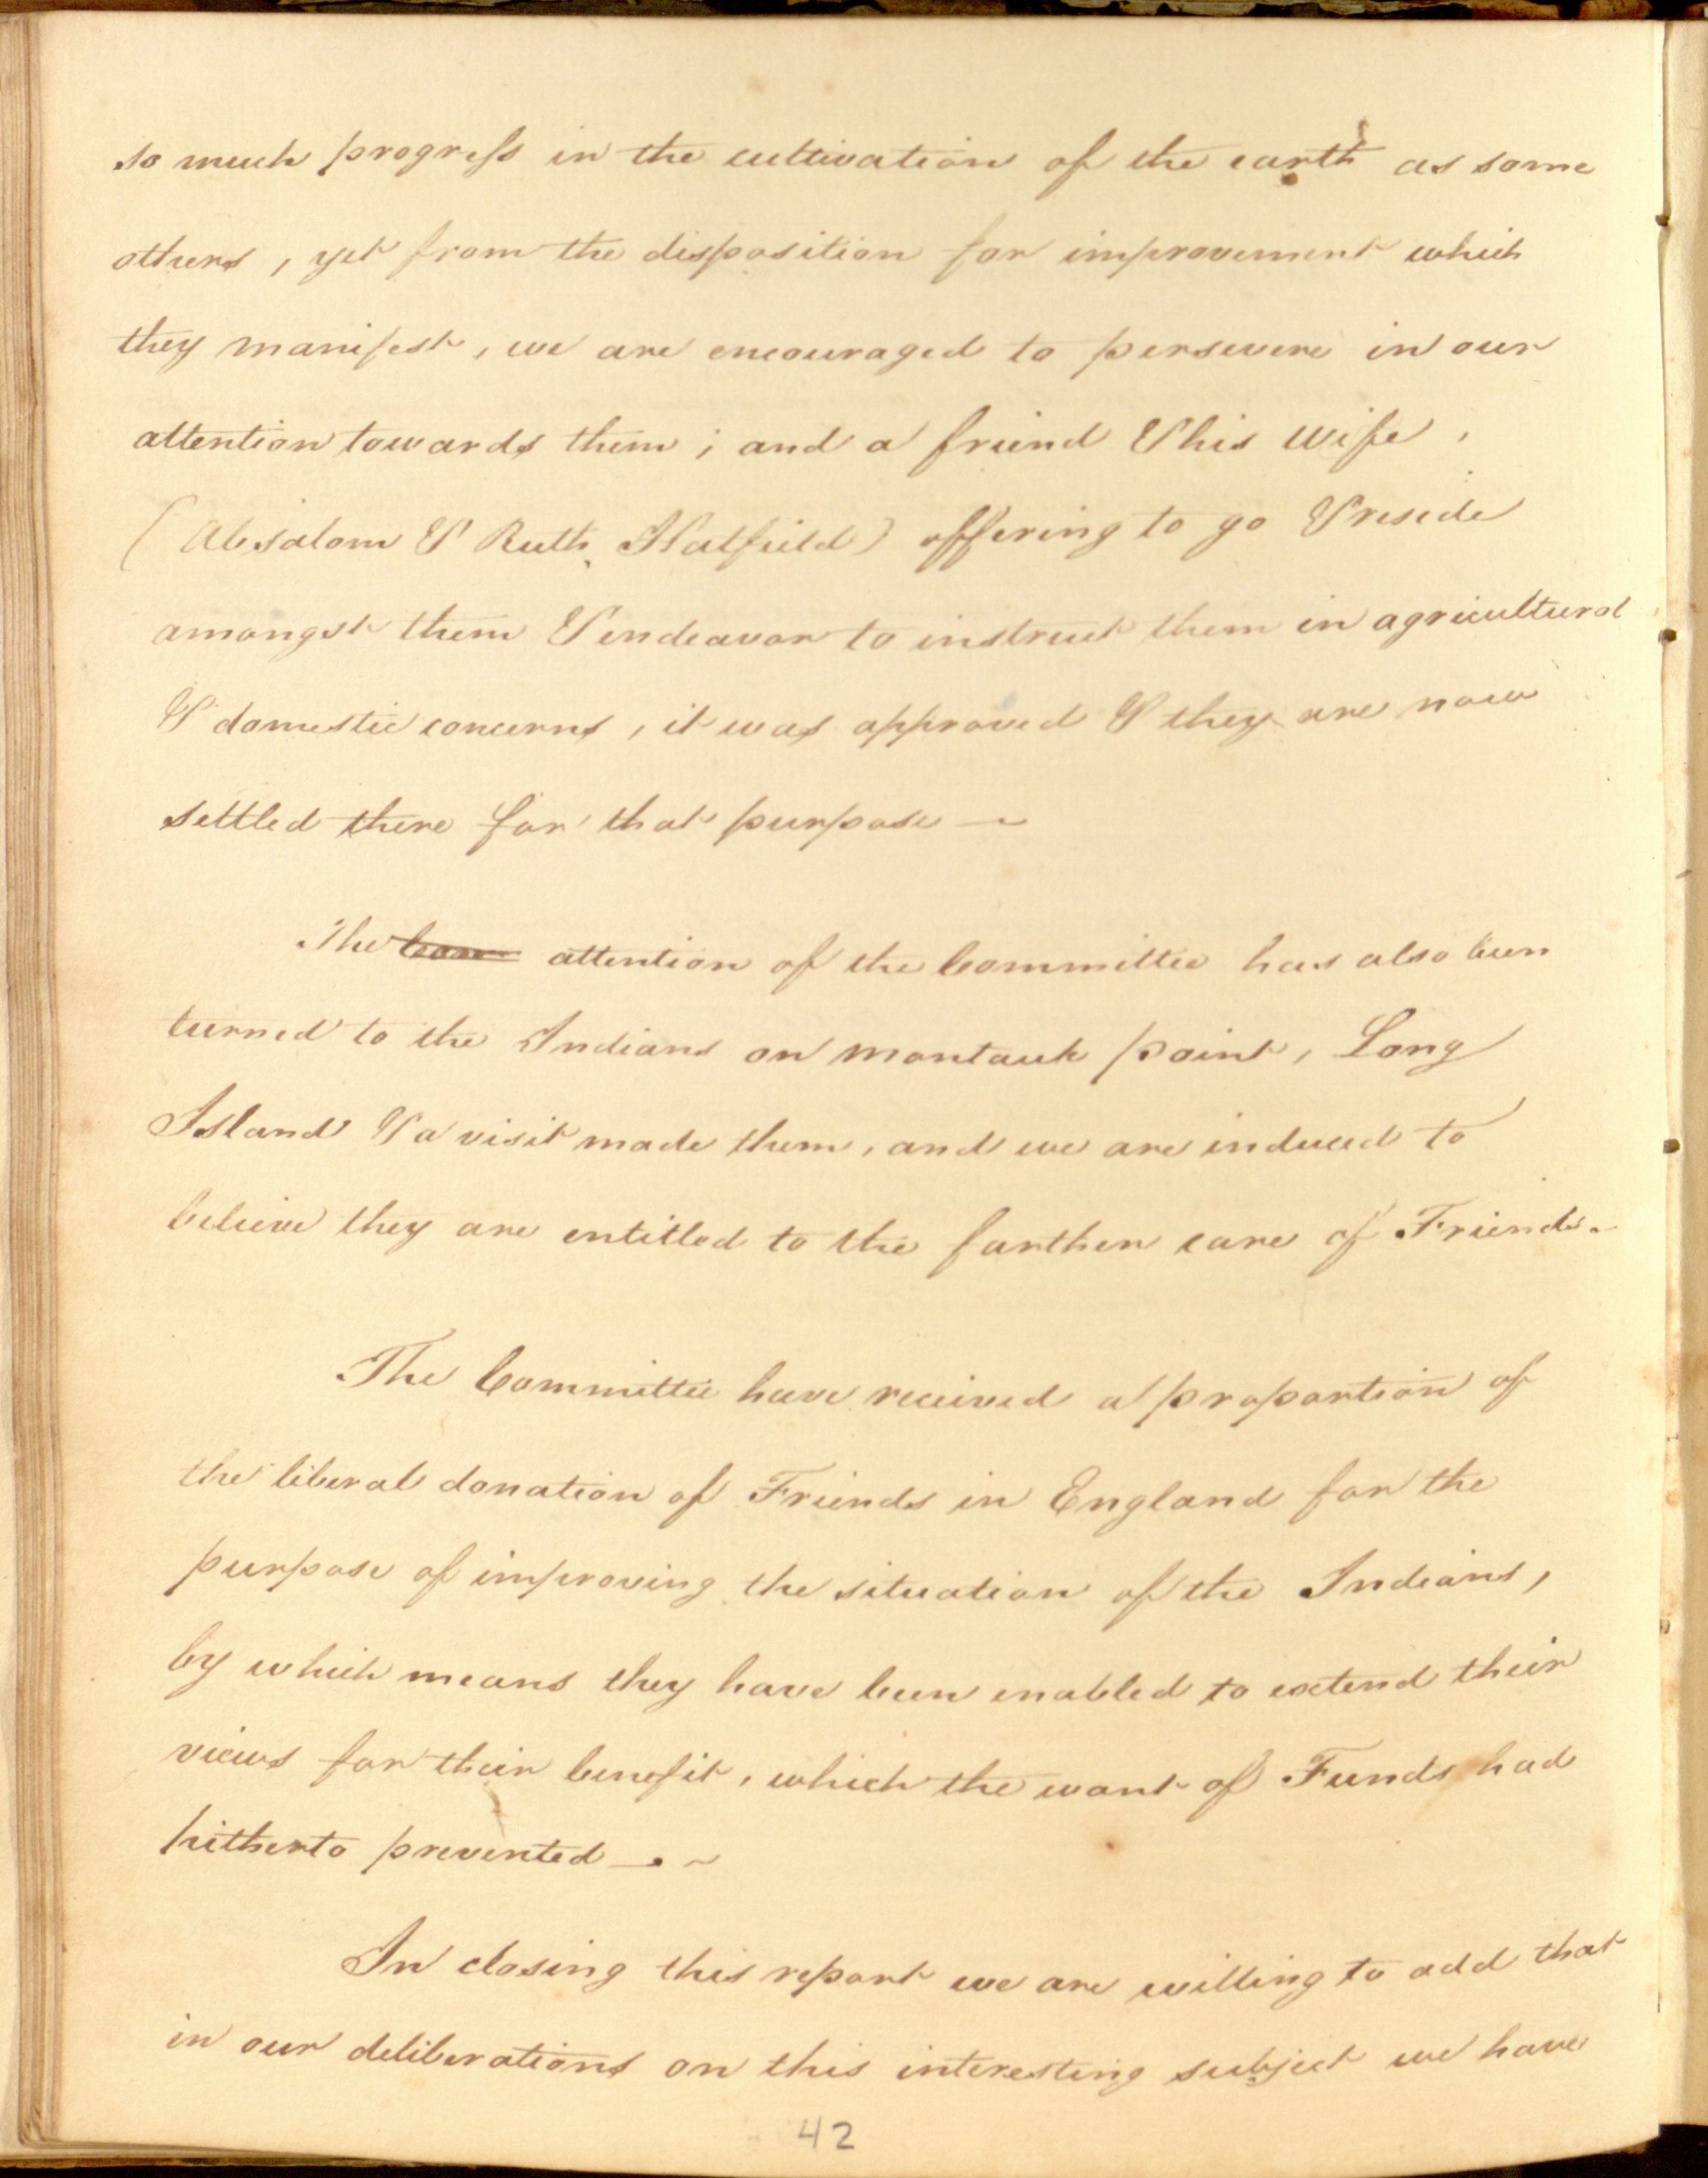 so much progress in the cultivation of the earth as some
others, yet from the disposition for improvement which
they manifest, we are encouraged to persevere in our
attention towards them; and a friend & his wife,
(Absalom & Ruth Hatfield) offering to go & reside
amongst them & endeavor to instruct them in agricultural
& domestic concerns, it was approved & they are now
settled there for that purpose —
The attention of the Committee has also been
turned to the Indians on montauk point, Long
Island & a visit made them, and we are induced to
believe they are entitled to the farther care of Friends.
The Committee have received a proportion of
the liberal donation of Friends in England for the
purpose of improving the situation of the Indians,
by which means they have been enabled to extend their
views for their benefit, which the want of Funds had
hitherto prevented —
In closing this report we are willing to add that
in our deliberations on this interesting subject we have
42